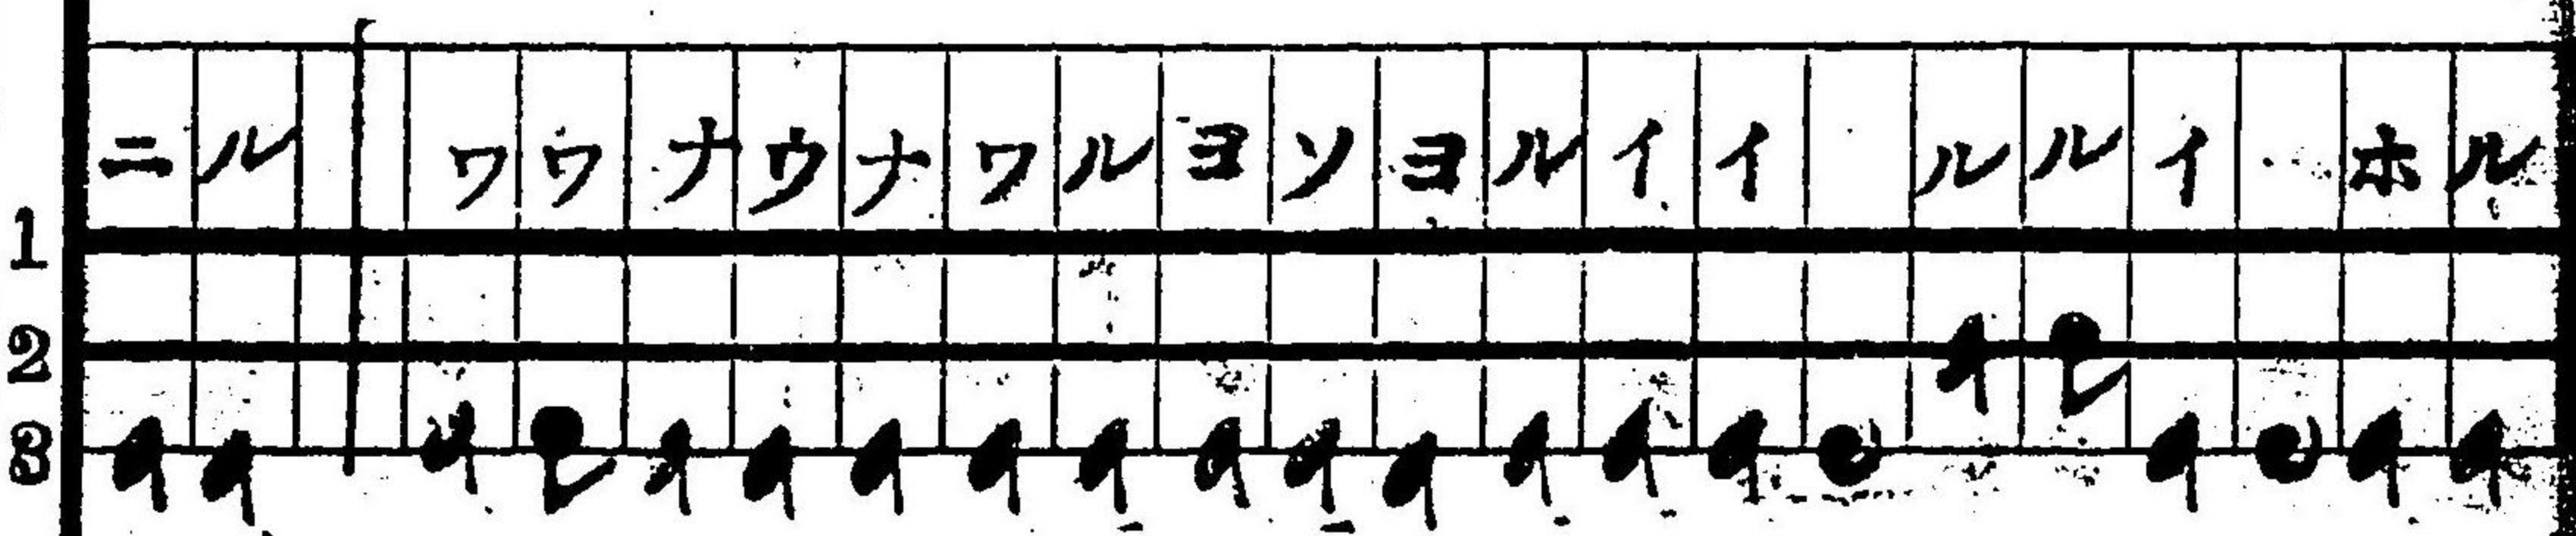 ニル ワウナウナワルヨソヨルイイ ルルイ ホル
1
2
3